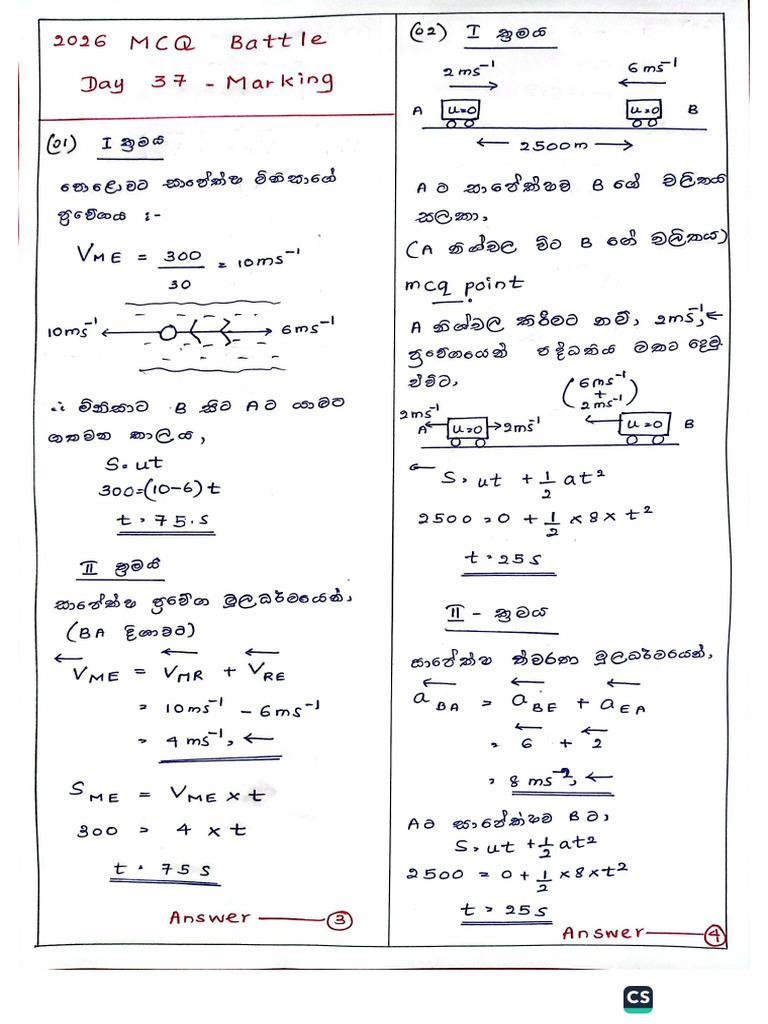 2026 MCQ Battle
Day 37 - Marking
(01) I ක්‍රමය
තෙළොවට සාපේක්ෂ මිනිසාගේ
ප්‍රවේගය :-
V_ME = 300/30 = 10ms⁻¹
10ms⁻¹ 6ms⁻¹
∴ මිනිසාට B සිට A ට යාමට
ගතවන කාලය,
S = ut
300 = (10-6) t
t = 75 s
II ක්‍රමය
සාපේක්ෂ ප්‍රවේග මූලධර්මයෙන්,
(BA දිශාවට)
←V_ME = ←V_MR + ←V_RE
= 10ms⁻¹ - 6ms⁻¹
= 4 ms⁻¹, ←
S_ME = V_ME × t
300 = 4 × t
t = 75 s
Answer — 3
(02) I ක්‍රමය
2ms⁻¹ 6ms⁻¹
A u=0 u=0 B
← 2500m →
A ට සාපේක්ෂව B ගේ චලිතය
සලකා,
(A නිශ්චල විට B ගේ චලිතය)
mcq point
A නිශ්චල කිරීමට නම්, 2ms⁻¹, ←
ප්‍රවේගයෙන් පද්ධතිය මතට දෙමු.
එවිට,
(6ms⁻¹ + 2ms⁻¹)
2ms⁻¹ A u=0 2ms⁻¹ u=0 B
← S = ut + 1/2 at²
2500 = 0 + 1/2 × 8 × t²
t = 25 s
II - ක්‍රමය
සාපේක්ෂ ත්වරණ මූලධර්මයෙන්,
←a_BA = ←a_BE + ←a_EA
= ←6 + ←2
= 8 ms⁻², ←
A ට සාපේක්ෂව B ට,
S = ut + 1/2 at²
2500 = 0 + 1/2 × 8 × t²
t = 25 s
Answer — 4
CS